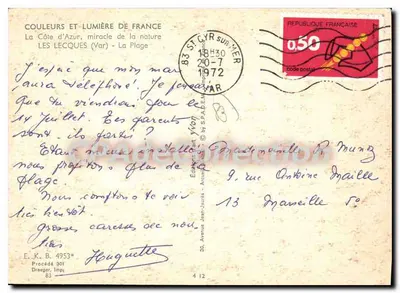 COULEURS ET LUMIÈRE DE FRANCE
La Côte d'Azur, miracle de la nature
LES LECQUES (Var) - La Plage
83 ST CYR SUR MER
18H30
20-7
1972
VAR
RÉPUBLIQUE FRANÇAISE
0,50
code postal
J'espère que mon mari
aura téléphoné. Je pensais
que tu viendrais pour le
14 Juillet. Tes parents
sont-ils partis ?
Étant nous
nous profitons plus de la
plage.
Nous comptons te voir
très bientôt
grosses caresses de nous
tous
Huguette
R. Muntz
9 rue Antoine Maille
13 Marseille 5e
E. K. B. 4953*
Procédé 301
Draeger, Imp.
83
4 12
Yvon